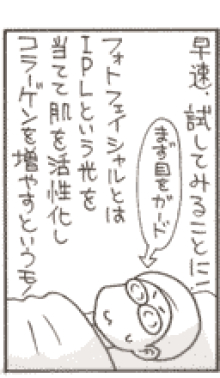 早速、試してみることに
まず目をガード
フォトフェイシャルとは
IPLという光を
当てて肌を活性化し
コラーゲンを増やすというモノ